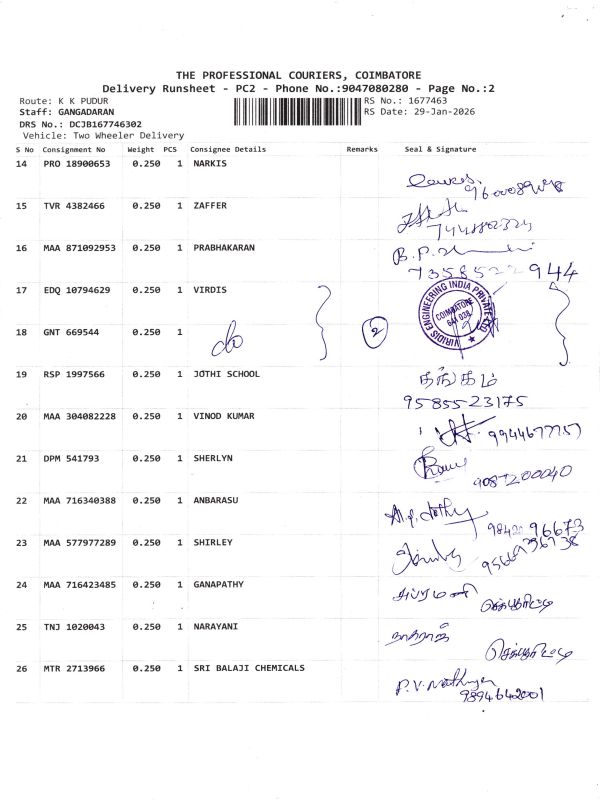 THE PROFESSIONAL COURIERS, COIMBATORE
Delivery Runsheet - PC2 - Phone No.:9047080280 - Page No.:2
Route: K K PUDUR
RS No.: 1677463
Staff: GANGADARAN
RS Date: 29-Jan-2026
DRS No.: DCJB167746302
Vehicle: Two Wheeler Delivery
S No Consignment No Weight PCS Consignee Details Remarks Seal & Signature
14 PRO 18900653 0.250 1 NARKIS
15 TVR 4382466 0.250 1 ZAFFER
16 MAA 871092953 0.250 1 PRABHAKARAN
7358522944
17 EDQ 10794629 0.250 1 VIRDIS
VIRIDIS ENGINEERING INDIA PRIVATE LTD
COIMBATORE
641 038
18 GNT 669544 0.250 1 do 2
19 RSP 1997566 0.250 1 JOTHI SCHOOL
தங்கம்
95855 23175
20 MAA 304082228 0.250 1 VINOD KUMAR
21 DPM 541793 0.250 1 SHERLYN
9087200040
22 MAA 716340388 0.250 1 ANBARASU
23 MAA 577977289 0.250 1 SHIRLEY
24 MAA 716423485 0.250 1 GANAPATHY
சுப்ரமணி
25 TNJ 1020043 0.250 1 NARAYANI
நாகராஜ்
26 MTR 2713966 0.250 1 SRI BALAJI CHEMICALS
9894642001